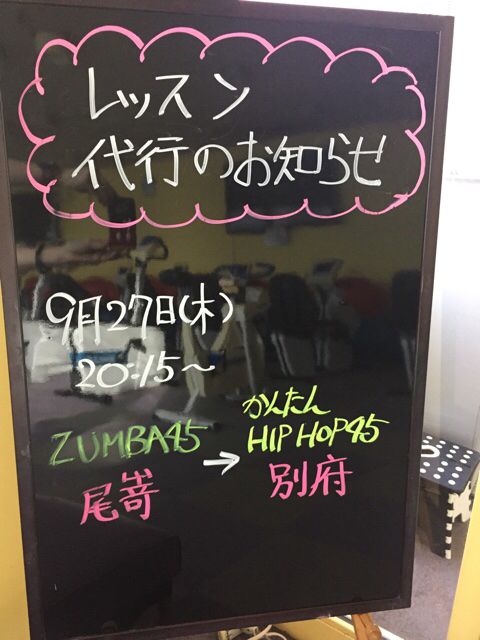 レッスン
代行のお知らせ
9月27日(木)
20:15〜
ZUMBA45
→
かんたん
HIP HOP45
尾嵜
別府